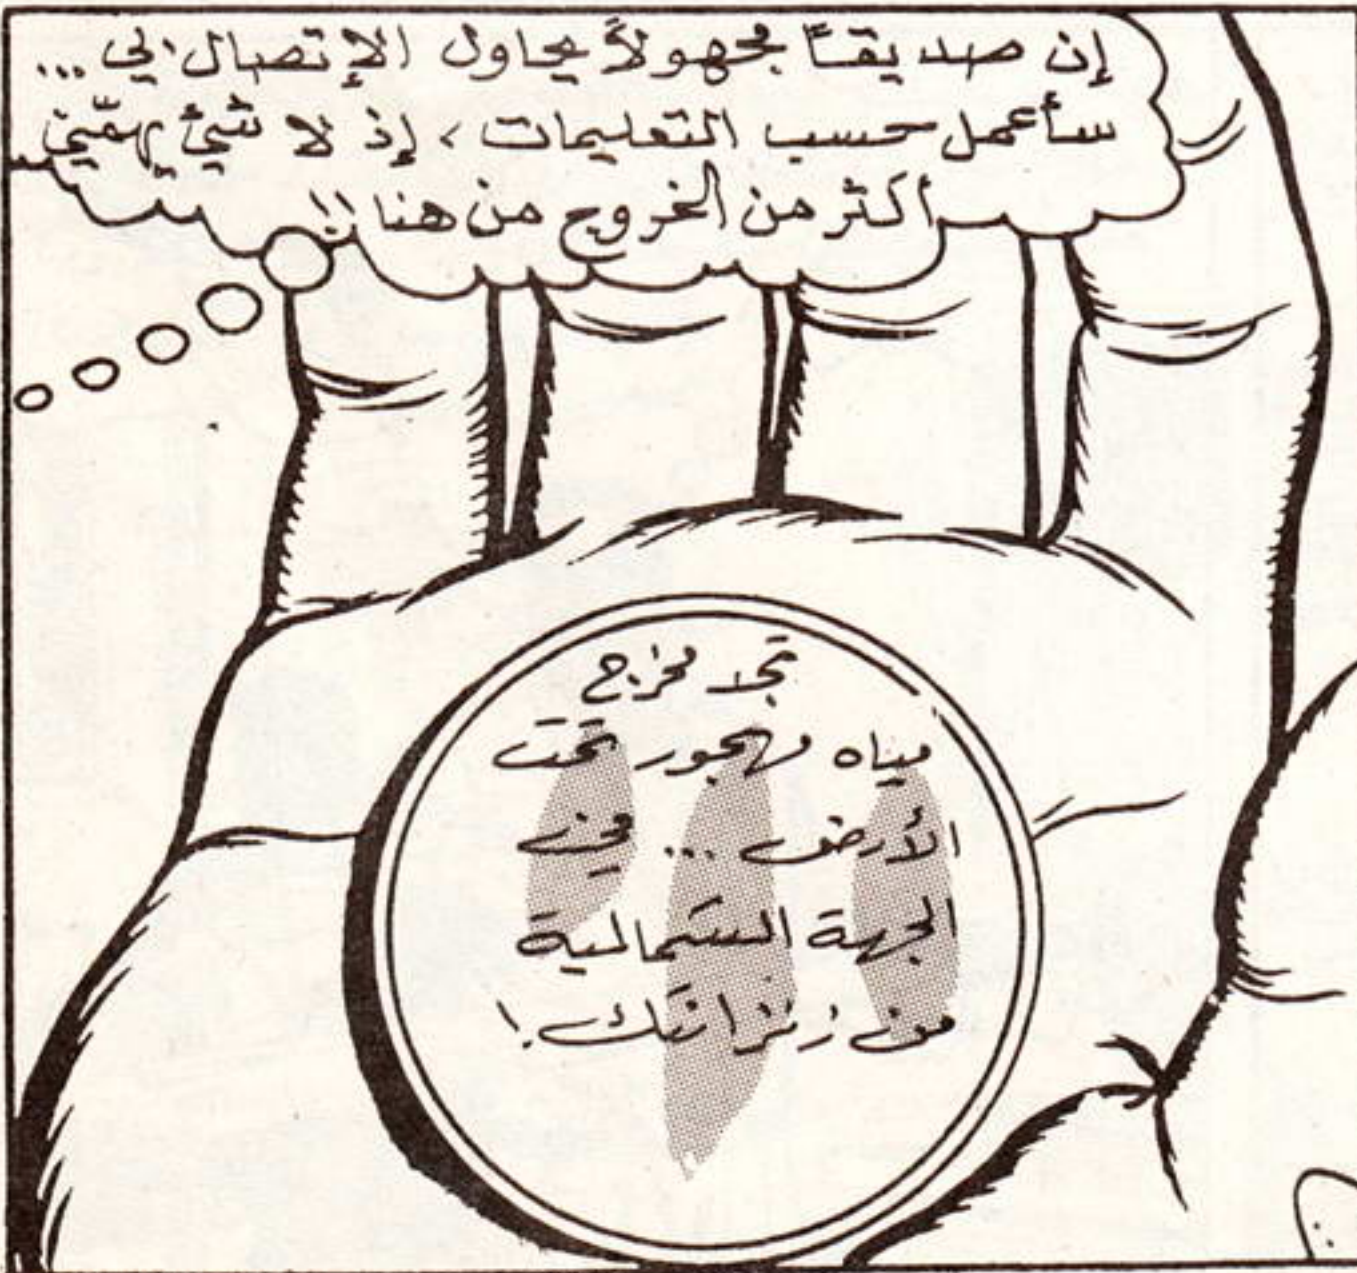 إن صديقاً مجهولاً يحاول الإتصال بي...
سأعمل حسب التعليمات، إذ لا شيئ يهمّني
أكثر من الخروج من هنا!!
تجد مخرج
مياه مهجور تحت
الأرض... في
الجهة الشمالية
من زنزانتك!